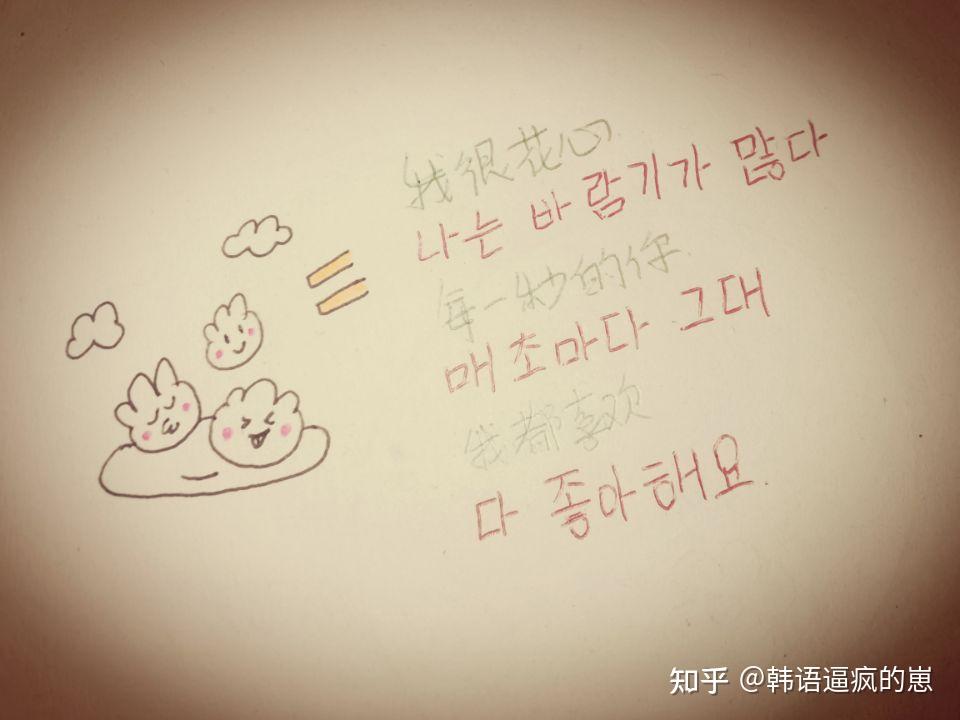 我很花心
나는 바람기가 많다
每一秒的你
매 초마다 그대
我都喜欢
다 좋아해요.
知乎 @韩语逼疯的崽